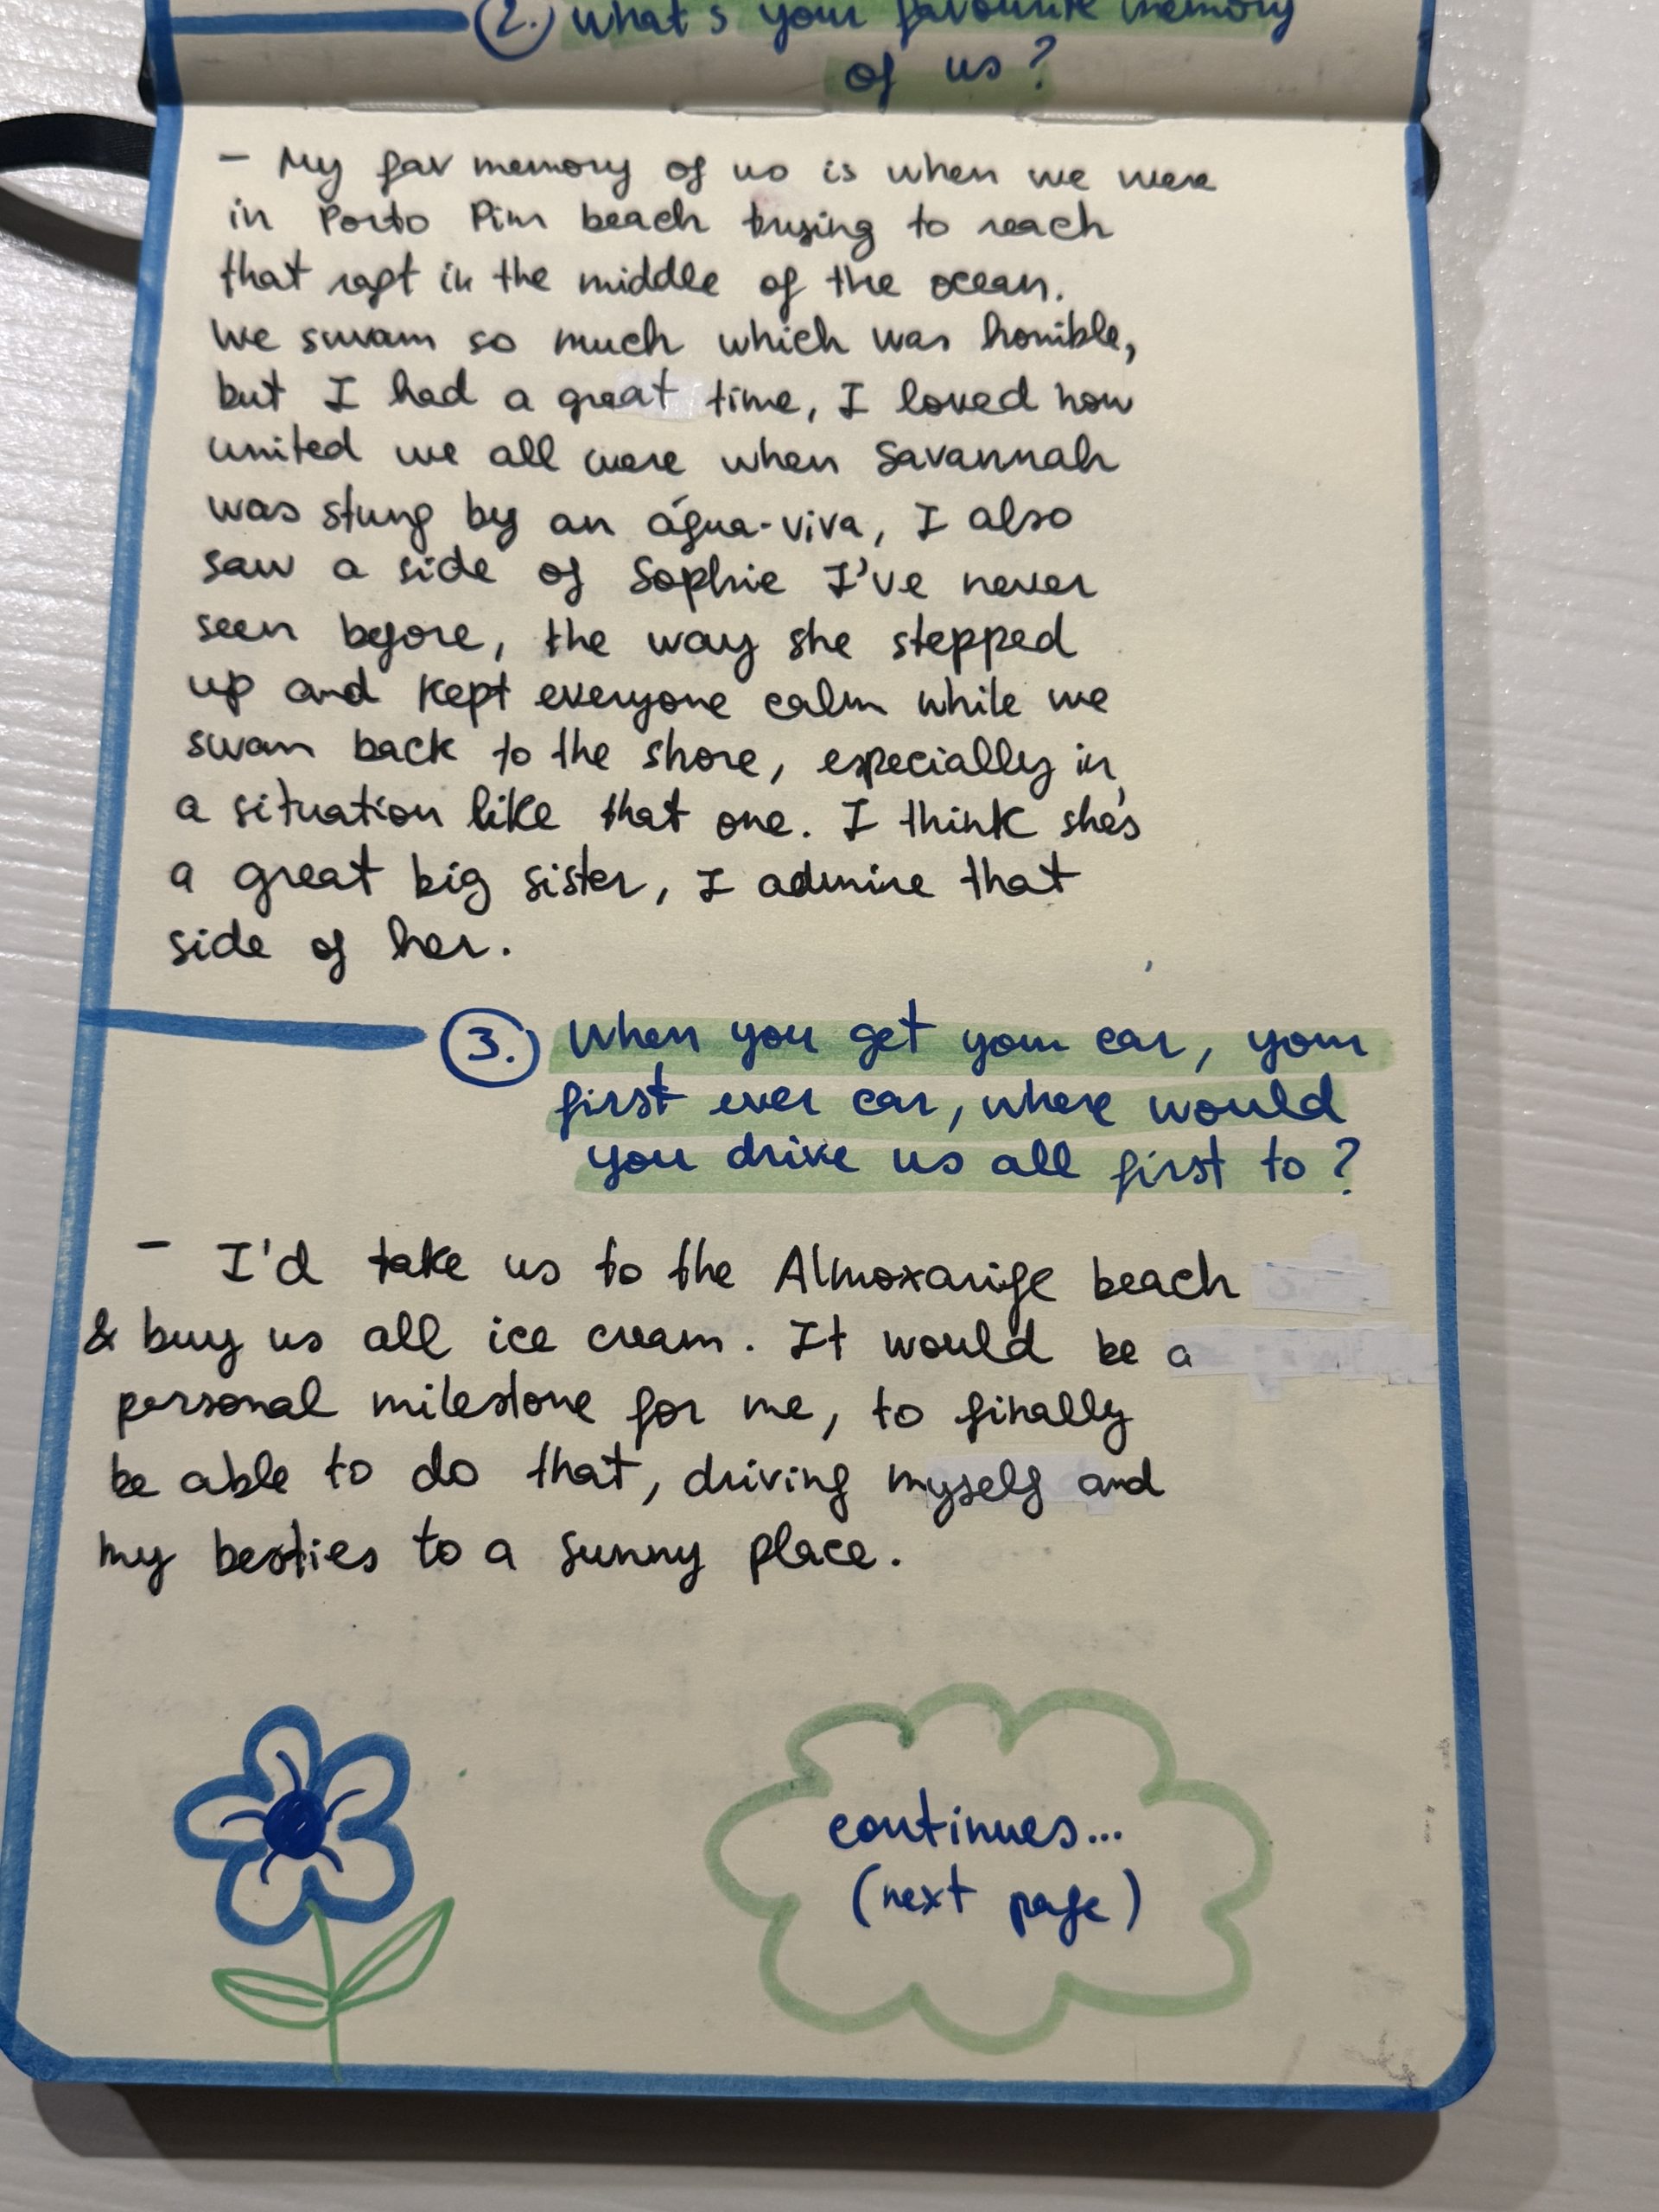 2. What's your favourite memory
of us?
- My fav memory of us is when we were
in Porto Pim beach trying to reach
that raft in the middle of the ocean.
We swam so much which was horrible,
but I had a great time, I loved how
united we all were when Savannah
was stung by an água-viva, I also
saw a side of Sophie I've never
seen before, the way she stepped
up and kept everyone calm while we
swam back to the shore, especially in
a situation like that one. I think she's
a great big sister, I admire that
side of her.
3. When you get your car, your
first ever car, where would
you drive us all first to?
- I'd take us to the Almoxarife beach
& buy us all ice cream. It would be a
personal milestone for me, to finally
be able to do that, driving myself and
my besties to a sunny place.
continues...
(next page)